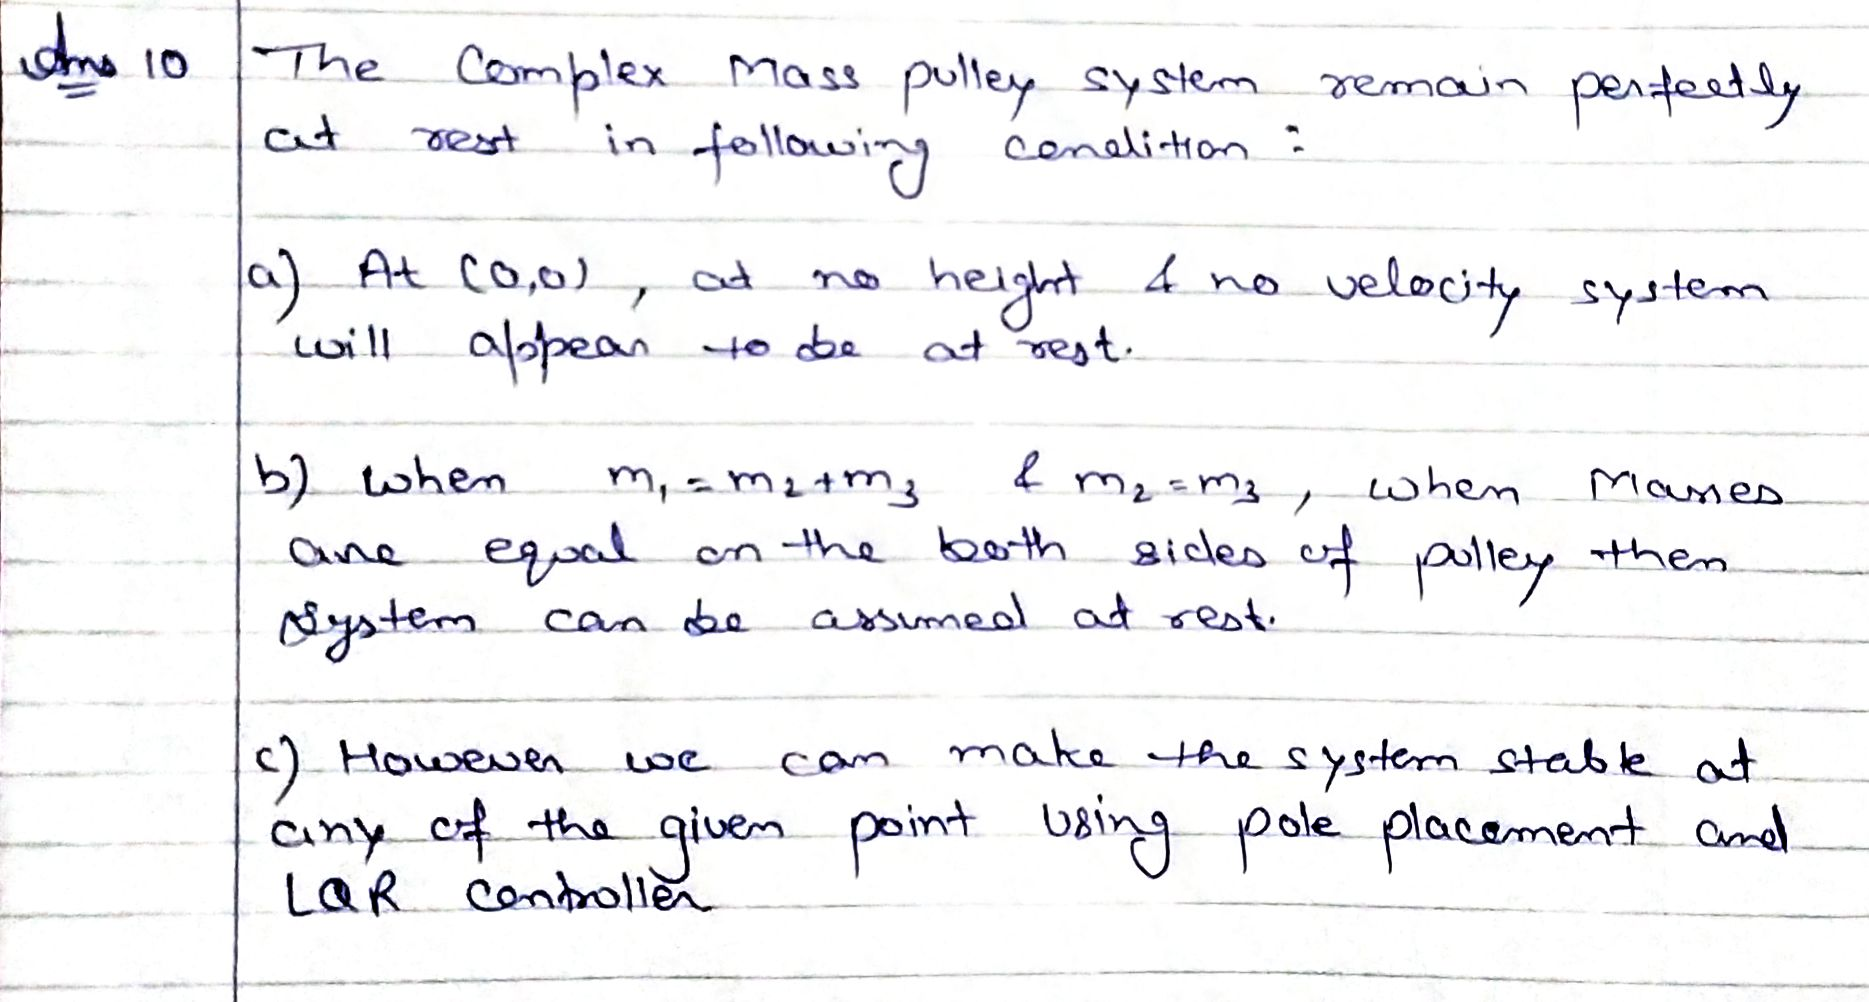 Ans 10 The Complex Mass pulley system remain perfectly
at rest in following condition :
a) At (0,0), at no height & no velocity system
will appear to be at rest.
b) When m₁ = m₂ + m₃ & m₂ = m₃, when Masses
are equal on the both sides of pulley then
system can be assumed at rest.
c) However we can make the system stable at
any of the given point using pole placement and
LQR controller